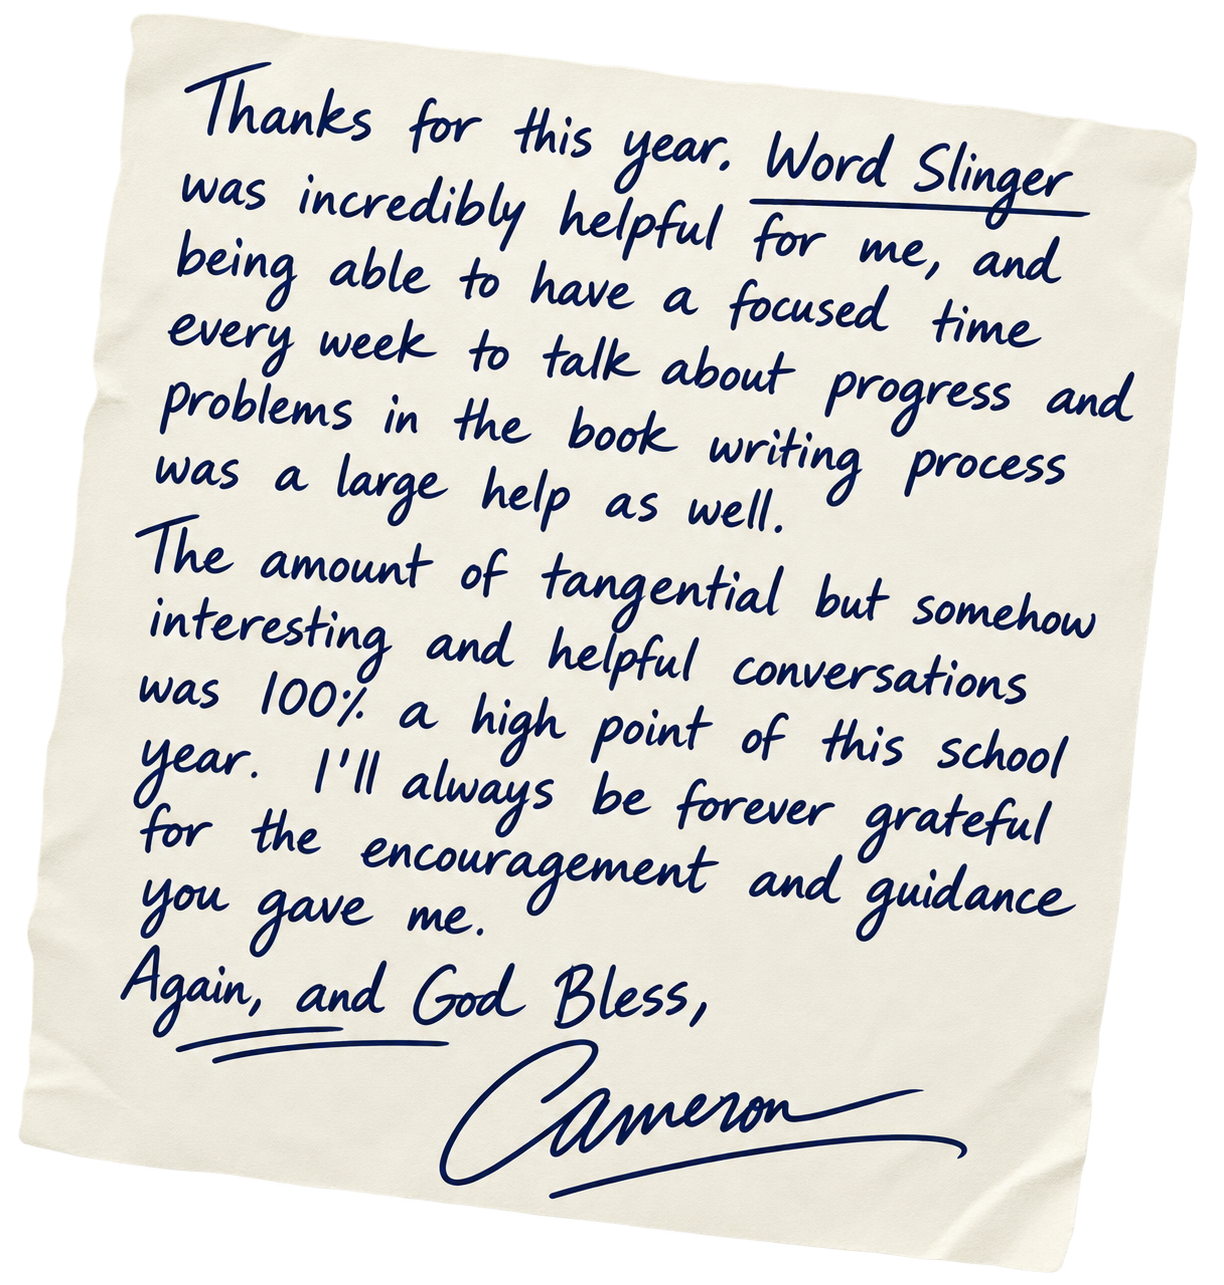 Thanks for this year. Word Slinger
was incredibly helpful for me, and
being able to have a focused time
every week to talk about progress and
problems in the book writing process
was a large help as well.
The amount of tangential but somehow
interesting and helpful conversations
was 100% a high point of this school
year. I'll always be forever grateful
for the encouragement and guidance
you gave me.
Again, and God Bless,
Cameron